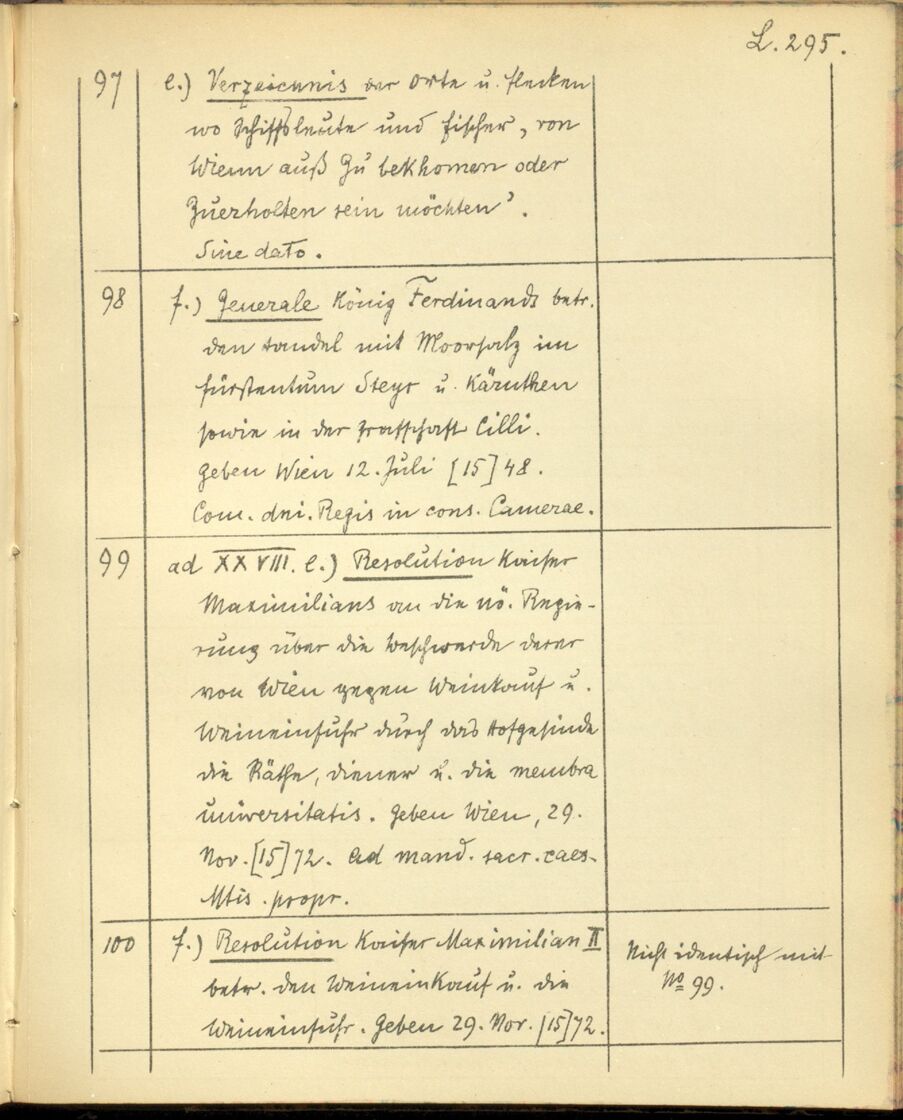 L. 295.
97
e.) Verzeichnis der Orte u. Flecken
wo Schiffsleute und Fischer „von
Wienn auß Zu bekhomen oder
Zuerholten sein möchten".
Sine dato.
98
f.) Generale König Ferdinands betr.
den Handel mit Moorsalz im
Fürstentum Steyr u. Kärnthen
sowie in der Grafschaft Cilli.
Geben Wien 12. Juli [15]48.
Com. dni. Regis in cons. Camerae.
99
ad XXVIII. e.) Resolution Kaiser
Maximilians an die nö. Regie-
rung über die Beschwerde derer
von Wien gegen Weinkauf u.
Weineinfuhr durch das Hofgesinde
die Räthe, diener u. die membra
universitatis. Geben Wien, 29.
Nov. [15]72. Ad mand. sacr. caes.
Mtis. propr.
100
f.) Resolution Kaiser Maximilian II
betr. den Weineinkauf u. die
Weineinfuhr. Geben 29. Nov. [15]72.
Nicht identisch mit
No 99.